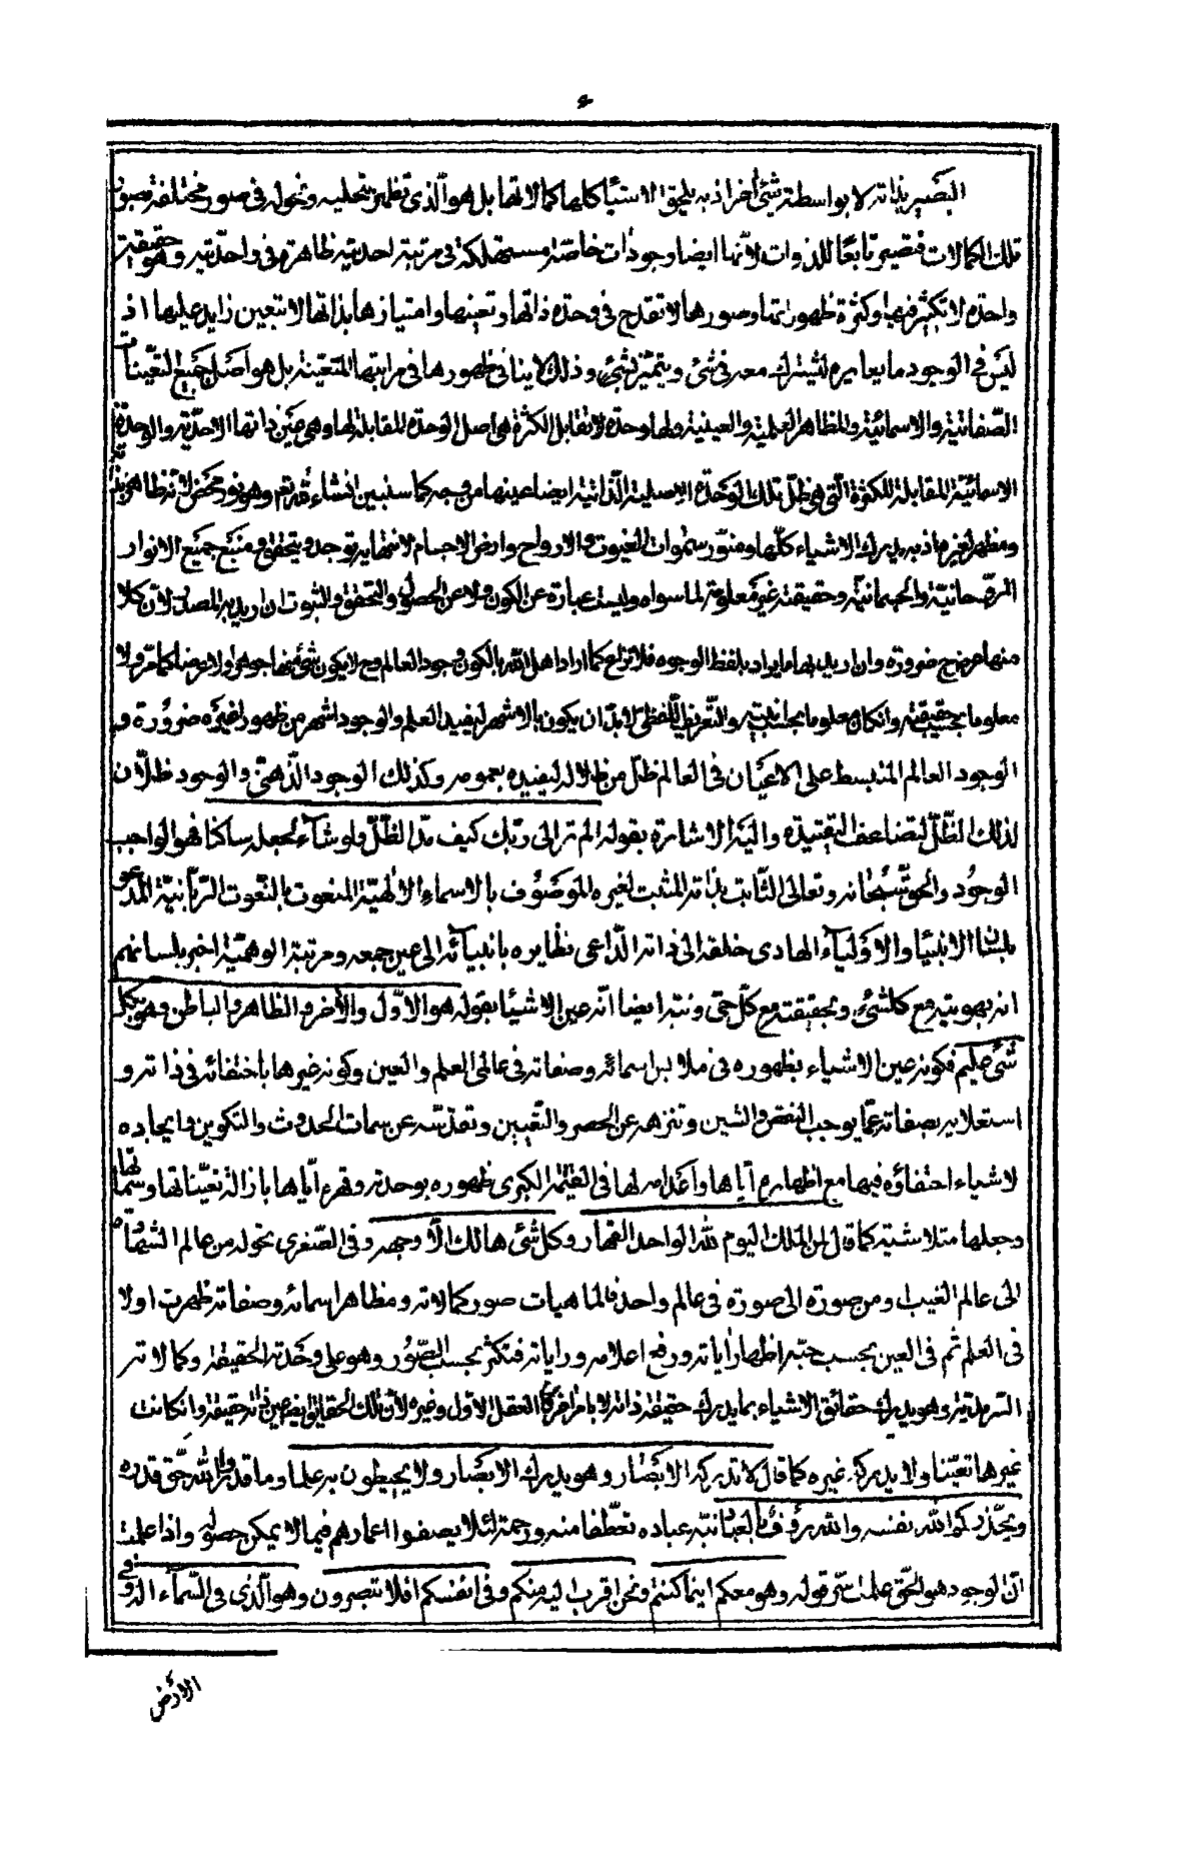 ٤
البصير بذاته لا بواسطة شئ أخر اذ به يلحق الاشيا كلها كمالاتها بل هو الّذى تظهر بتجليه وتحوله فى صور مختلفة بصور
تلك الكمالات فتصير تابعًا للذوات لانّها ايضا وجودات خاصة مستهلكة فى مرتبة احديته ظاهرة فى واحديته وهو حقيقة
واحدة لا تكثر فيها وكثرة ظهوراتها وصورها لا تقدح فى وحدة ذاتها وتعينها وامتيازها بذاتها لا بتعين زايد عليها اذ
ليس فى الوجود ما يغايره ليشترك معه فى شئ ويتميّز بشئ وذلك لا ينافى ظهورها فى مراتبها المتعينة بل هو اصل جميع التعيّنات
الصّفاتية والاسمائية والمظاهر العلمية والعينية ولها وحدة لا تقابل الكثرة هى اصل الوحدة المقابلة لها وهى عين ذاتها الاحديّة والوحدة
الاسمائية المقابلة للكثرة الّتى هى ظلّ تلك الوحدة الاصلية الذّاتية ايضا عينها من وجه كما سنبين انشاء الله تم وهو نور محض لانّه ظاهر بذاته
ومظهر لغيره اذ به يدرك الاشياء كلّها ومنوّر سموات الغيوب والارواح وارض الاجسام لانّها به توجد ويتحقق ومنبع جميع الانوار
الرّوحانيّة والجسمانيّة وحقيقته غير معلومة لما سواه وليست عبارة عن الكون ولا عن الحصول والتحقق والثبوت ان اريد بها المصدر لانّ كلا
منها عرض ح ضرورة وان اريد بها ما يراد بلفظ الوجود فلا نزاع كما اراد اهل الله بالكون وجود العالم وح لا يكون شئ منها جوهرا ولا عرضا كما مرّ ولا
معلوما بحسب حقيقته وان كان معلوما بحسب انيته والتّعريف اللّفظى لا بدّ ان يكون بالاشهر ليفيد العلم والوجود اشهر من ظهور اغيره ضرورة و
الوجود العالم المنبسط على الاعيان فى العالم ظلّ من ظلاله لتقيده بعمومه وكذلك الوجود الذّهنى والوجود ظلان
لذلك الظّلّ لتضاعف التقييد واليه الاشارة بقوله الم تر الى ربّك كيف مدّ الظّلّ ولو شاء لجعله ساكنا فهو الواجب
الوجود والحق سُبحانه وتعالى الثّابت بذاته المثبت لغيره الموصوف بالاسماء الالهيّة المنعوت بالنّعوت الرّبّانيّة المدعو
بلسان الانبيا والاولياء الهادى خلقه الى ذاته الدّاعى مظاهره بانبيائه الى عين جمعه ومرتبة الوهيّته اخبر بلسانهم
انه بهويته مع كل شئ وبحقيقته مع كلّ حىّ ونبّه ايضا انّه عين الاشيا بقوله هو الاوّل والآخر والظاهر والباطن وهو بكل
شئ عليم فكونه عين الاشياء بظهوره فى ملابس اسمائه وصفاته فى عالمى العلم والعين وكونه غيرها باختفائه فى ذاته و
استعلائه بصفاته عمّا يوجب النقص والشين وتنزهه عن الحصر والتّعيين وتقدّسه عن سمات الحدوث والتكوين وايجاده
لاشياء اختفاؤه فيها مع اظهاره ايّاها واعدامه لها فى القيمة الكبرى ظهوره بوحدته وقهره ايّاها بازالة تعيّناتها وسماتها
وجعلها متلاشية كما قال لمن الملك اليوم لله الواحد القهار وكل شئ هالك الّا وجهه وفى الصّغرى تحوله من عالم الشهادة
الى عالم الغيب او من صورة الى صورة فى عالم واحد فالماهيات صور كمالاته ومظاهر اسمائه وصفاته ظهرت اولا
فى العلم ثم فى العين بحسب حبّه اظهار اياته ورفع اعلامه وراياته فتكثّر بحسب الصّور وهو على وحدته الحقيقة وكمالاته
السرمدية وهو يدرك حقائق الاشياء بما يدرك حقيقة ذاته لا بامر اخر كالعقل الاول وغيره لانّ تلك الحقائق ايضا عين ذاته حقيقة وان كانت
غيرها تعيّنا ولا يدركه غيره كما قال لا تدركه الابصار وهو يدرك الابصار ولا يحيطون به علما وما قدروا الله حق قدره
ويحذّركم الله نفسه والله رؤف بالعباد نبّه عباده تعطّفا منه ورحمة لئلا يصفوا اعمارهم فيما لا يمكن حصوله واذا علمت
انّ الوجود هو الحق علمت سرّ قوله وهو معكم اينما كنتم ونحن اقرب اليه منكم وفى انفسكم افلا تبصرون وهو الّذى فى السّماء اله وفى
الارض